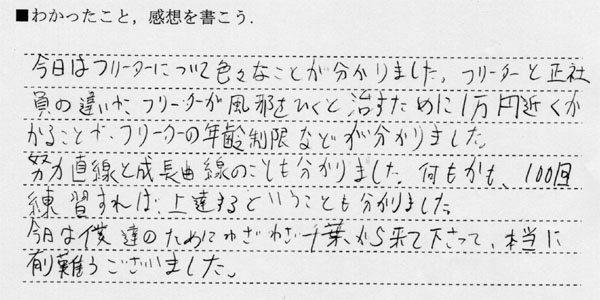 ■わかったこと，感想を書こう．
今日はフリーターについて色々なことが分かりました。フリーターと正社
員の違いや フリーターが風邪をひくと治すために1万円近くか
かることや、フリーターの年齢制限などが分かりました。
努力直線と成長曲線のことも分かりました。何もかも、100回
練習すれば、上達するということも分かりました
今日は僕達のためにわざわざ千葉から来て下さって、本当に
有難うございました。